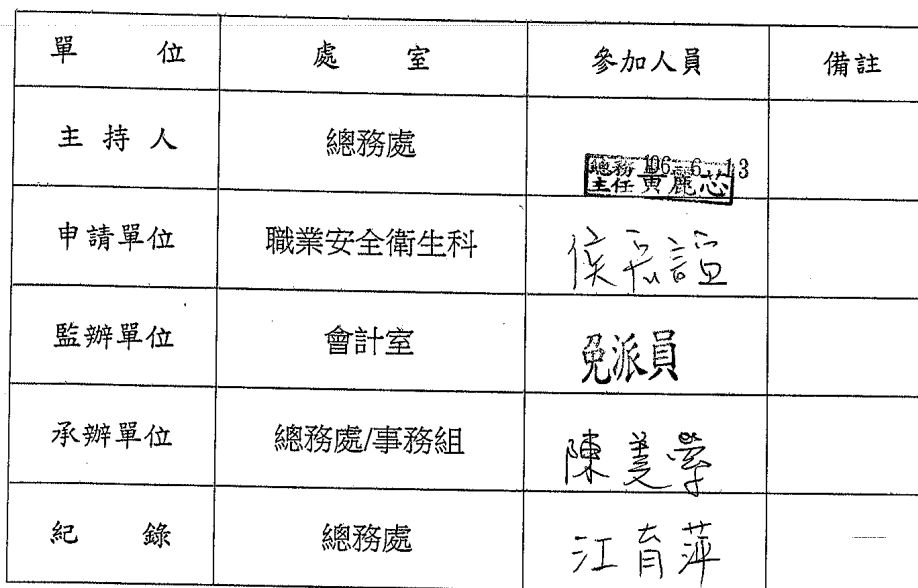 單 位 處 室 參加人員 備註
主 持 人 總務處 總務主任 黃麗芯 106-6-13
申請單位 職業安全衛生科 侯
監辦單位 會計室 免派員
承辦單位 總務處/事務組 陳美
紀 錄 總務處 江育萍